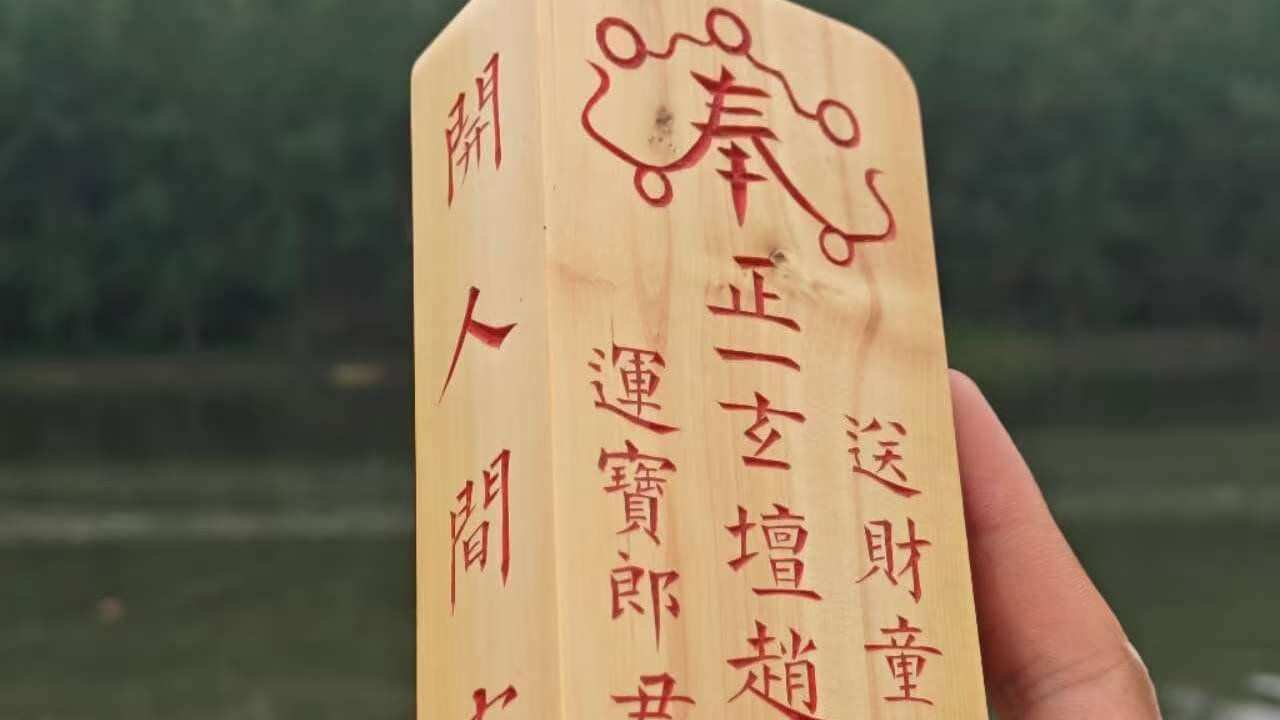 送財童
奉正一玄壇趙
運寶郎君
開人間